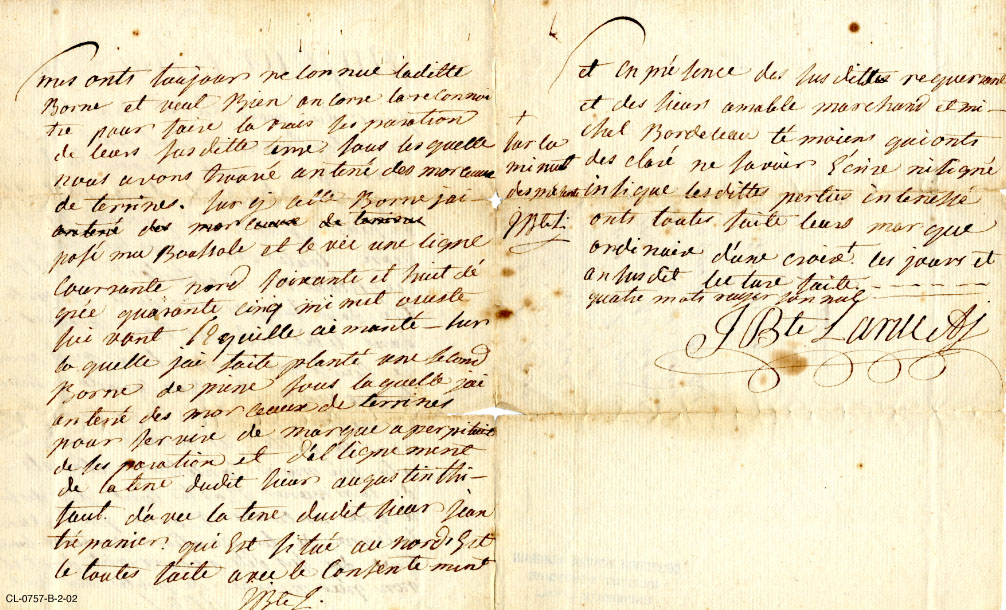 mis onts toujour reconnue ladette
Borne et veul Bien ancorre la reconnoi
tre pour faire la vrais sesparation
de leurs susdette terre sous les quelle
nous avons trouvé anteré des morceaux
de terrines. Sur qi cette Borne jai
anterié des morceaux de terrisne
posé ma Boussole et levée une ligne
Courrante nord soixante et huit dé
grée quarante cinq mi nuit oueste
sui vant l'Eguille aémanté - sur
la quelle jai faite planté une second
Borne de piere sous laquelle jai
anteré des morceaux de terrinés
pour servire de marque a perpituité
de ses paration et d'alignement
de la tere dudit sieur augustin thi-
faut. d'avec la tere dudit sieur jean
trépanier. qui Est situé au nord Est
le toutes faite avec le Consente ment
JBte L.
et En présence des susdittes requerant
et des sieur amable marchand et mi-
chel Bordeleau témoiens qui onts
des claré ne savoir Ecrire ni signé
insi que les dittes perties interessé
onts toutes faite leurs marque
ordinaire d'une croix. les jours et
an susdit lecture faite - - - - -
quatre mots rayer son nul
J Bte Larue Ar
+
sur la
minuit
des me
JBte L.
CL-0757-B-2-02